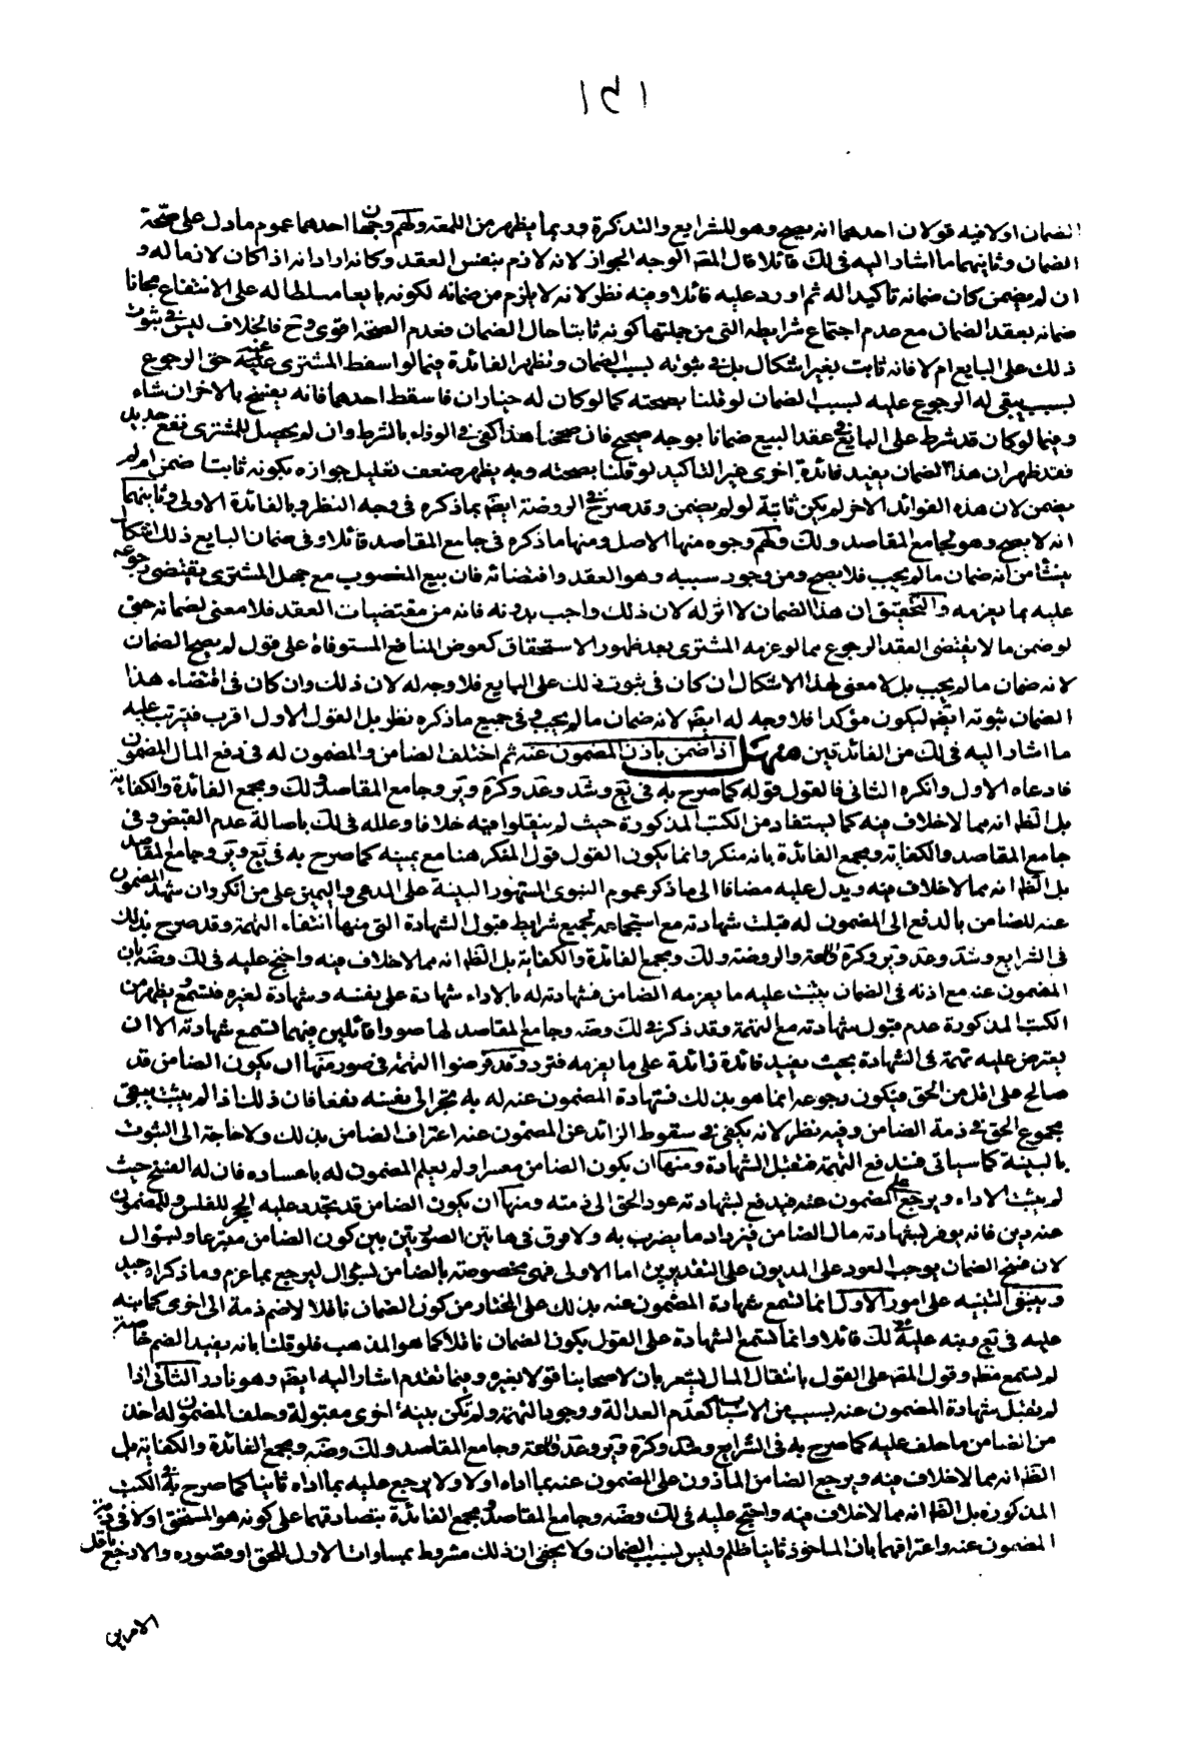 الضمان اولا فيه قولان احدهما انه يصح وهو للشرايع والتذكرة وربما يظهر من اللمعة ولهم وجهان احدهما عموم ما دل على صحة
الضمان وثانيهما ما اشار اليه فى لك قائلا قال المقم الوجه الجواز لانه لازم بنفس العقد وكانه اراد انه اذا كان لازما له و
ان لم يضمن كان ضمانه تاكيدا له ثم اورد عليه قائلا وفيه نظر لانه لا يلزم من ضمانه لكونه بايعا مسلطا له على الانتفاع مجانا
ضمانه بعقد الضمان مع عدم اجتماع شرايطه التى من جملتها كونه ثابتا حال الضمان فعدم الصحة اقوى وح فالخلاف ليس فى ثبوت
ذلك على البايع ام لا فانه ثابت بغير اشكال بل فى ثبوته بسبب الضمان وتظهر الفائدة فيما لو اسقط المشترى عنه حق الرجوع
بسبب يبقى له الرجوع عليه لسبب الضمان لو قلنا بصحته كما لو كان له خياران فاسقط احدهما فانه يفسخ بالاخر ان شاء
وفيما لو كان قد شرط على البايع فى عقد البيع ضمانا بوجه صحيح فان صححنا هذا كفى فى الوفاء بالشرط وان لم يحصل للمشترى نفع جديد
فقد ظهر ان هذا الضمان يفيد فائدة اخرى غير التاكيد لو قلنا بصحته وبه يظهر ضعف تعليل جوازه بكونه ثابتا ضمن ام لم
يضمن لان هذه الفوائد الاخر لم يكن ثابتة لو لم يضمن وقد صرح فى الروضة ايضا بما ذكره فى وجه النظر وبالفائدة الاولى وثانيهما
انه لا يصح وهو لجامع المقاصد ولك ولهم وجوه منها الاصل ومنها ما ذكره فى جامع المقاصد قائلا وفى ضمان البايع ذلك اشكال
ينشأ من انه ضمان ما لم يجب فلا يصح ومن وجود سببه وهو العقد واقتضائه فان بيع المغصوب مع جهل المشترى يقتضى رجوعه
عليه بما يغرمه والتحقيق ان هذا الضمان لا اثر له لان ذلك واجب بدونه فانه من مقتضيات العقد فلا معنى لضمانه حتى
لو ضمن ما لا يقتضى العقد الرجوع بما لو غرمه المشترى بعد ظهور الاستحقاق كعوض المنافع المستوفاة على قول لم يصح الضمان
لانه ضمان ما لم يجب بل لا معنى لهذا الاشكال ان كان فى ثبوت ذلك على البايع فلا وجه له لان ذلك وان كان فى اقتضاء هذا
الضمان ثبوته ايضا ليكون مؤكدا فلا وجه له ايضا لانه ضمان ما لم يجب وفى جميع ما ذكره نظر بل القول الاول اقرب فيترتب عليه
ما اشار اليه فى لك من الفائدتين منهل اذا ضمن باذن المضمون عنه ثم اختلف الضامن والمضمون له فى دفع المال المضمون
فادعاه الاول وانكره الثانى فالقول قوله كما صرح به فى يع وشد وعد وكرة وير وجامع المقاصد ولك ومجمع الفائدة والكفاية
بل الظ انه مما لا خلاف فيه كما يستفاد من الكتب المذكورة حيث لم ينقلوا فيه خلافا وعلله فى لك باصالة عدم القبض وفى
جامع المقاصد والكفاية ومجمع الفائدة بانه منكر وانما يكون القول قول المنكر هنا مع يمينه كما صرح به فى يع وير وجامع المقاصد
بل الظ انه مما لا خلاف فيه ويدل عليه مضافا الى ما ذكر عموم النبوى المشهور البينة على المدعى واليمين على من انكر وان شهد المضمون
عنه للضامن بالدفع الى المضمون له قبلت شهادته مع استجماعه لجميع شرايط قبول الشهادة التى منها انتفاء التهمة وقد صرح بذلك
فى الشرايع وشد وعد وير وكرة واللمعة والروضة ولك ومجمع الفائدة والكفاية بل الظ انه مما لا خلاف فيه واحتج عليه فى لك وضه بان
المضمون عنه مع اذنه فى الضمان يثبت عليه ما يغرمه الضامن فشهادته له بالاداء شهادة على نفسه وشهادة لغيره فتسمع ويظهر من
الكتب المذكورة عدم قبول شهادته مع التهمة وقد ذكر فى لك وضه وجامع المقاصد لها صورا قائلين فيهما تسمع شهادته الا ان
يفترض عليه تهمة فى الشهادة بحيث يفيد فائدة زائدة على ما يغرمه فترد وقد فرضوا التهمة فى صور منها ان يكون الضامن قد
صالح على اقل من الحق فيكون رجوعه انما هو بذلك فشهادة المضمون عنه له به تجر الى نفسه نفعا فان ذلك اذا لم يثبت يبقى
مجموع الحق فى ذمة الضامن وفيه نظر لانه يكفى فى سقوط الزائد عن المضمون عنه اعتراف الضامن بذلك ولا حاجة الى الثبوت
بالبينة كما سياتى فتندفع التهمة فتقبل الشهادة ومنها ان يكون الضامن معسرا ولم يعلم المضمون له باعساره فان له الفسخ حيث
لم يثبت الاداء ويرجع على المضمون عنه فيدفع بشهادته عود الحق الى ذمته ومنها ان يكون الضامن قد تجدد عليه الحجر للفلس وللمضمون
عنه دين فانه يوفر بشهادته مال الضامن فيزداد ما يضرب به ولا فرق فى هاتين الصورتين بين كون الضامن متبرعا وبسؤال
لان فسخ الضمان يوجب العود على المديون على التقديرين اما الاولى فهى مخصوصة بالضامن بسؤال ليرجع بما غرم وما ذكراه جيد
وينبغى التنبيه على امور الاول انما تسمع شهادة المضمون عنه بذلك على المختار من كون الضمان ناقلا لا ضم ذمة الى اخرى كما نبه
عليه فى يع ونبه عليه فى لك قائلا وانما تسمع الشهادة على القول بكون الضمان ناقلا كما هو المذهب فلو قلنا بانه يفيد الضم خاصة
لم تسمع مطلقا وقول المقم على القول بانتقال المال يشعر بان لاصحابنا قولا بغيره وفيما تقدم اشار اليه ايضا وهو نادر الثانى اذا
لم يقبل شهادة المضمون عنه بسبب من الاسباب كعدم العدالة ووجود التهمة ولم تكن بينة اخرى مقبولة وحلف المضمون له اخذ
من الضامن ما حلف عليه كما صرح به فى الشرايع وشد وكرة وير وعد واللمعة وجامع المقاصد ولك وضه ومجمع الفائدة والكفاية بل
الظ انه مما لا خلاف فيه ويرجع الضامن الماذون على المضمون عنه بما اداه اولا ولا يرجع عليه بما اداه ثانيا كما صرح به فى الكتب
المذكورة بل الظ انه مما لا خلاف فيه واحتج عليه فى لك وضه وجامع المقاصد ومجمع الفائدة بتصادقهما على كونه هو المستحق اولا فى ذمة
المضمون عنه واعترافهما بان الماخوذ ثانيا ظلم وليس بسبب الضمان ولا يخفى ان ذلك مشروط بمساوات الاول للحق او قصوره والا رجع باقل
الامرين